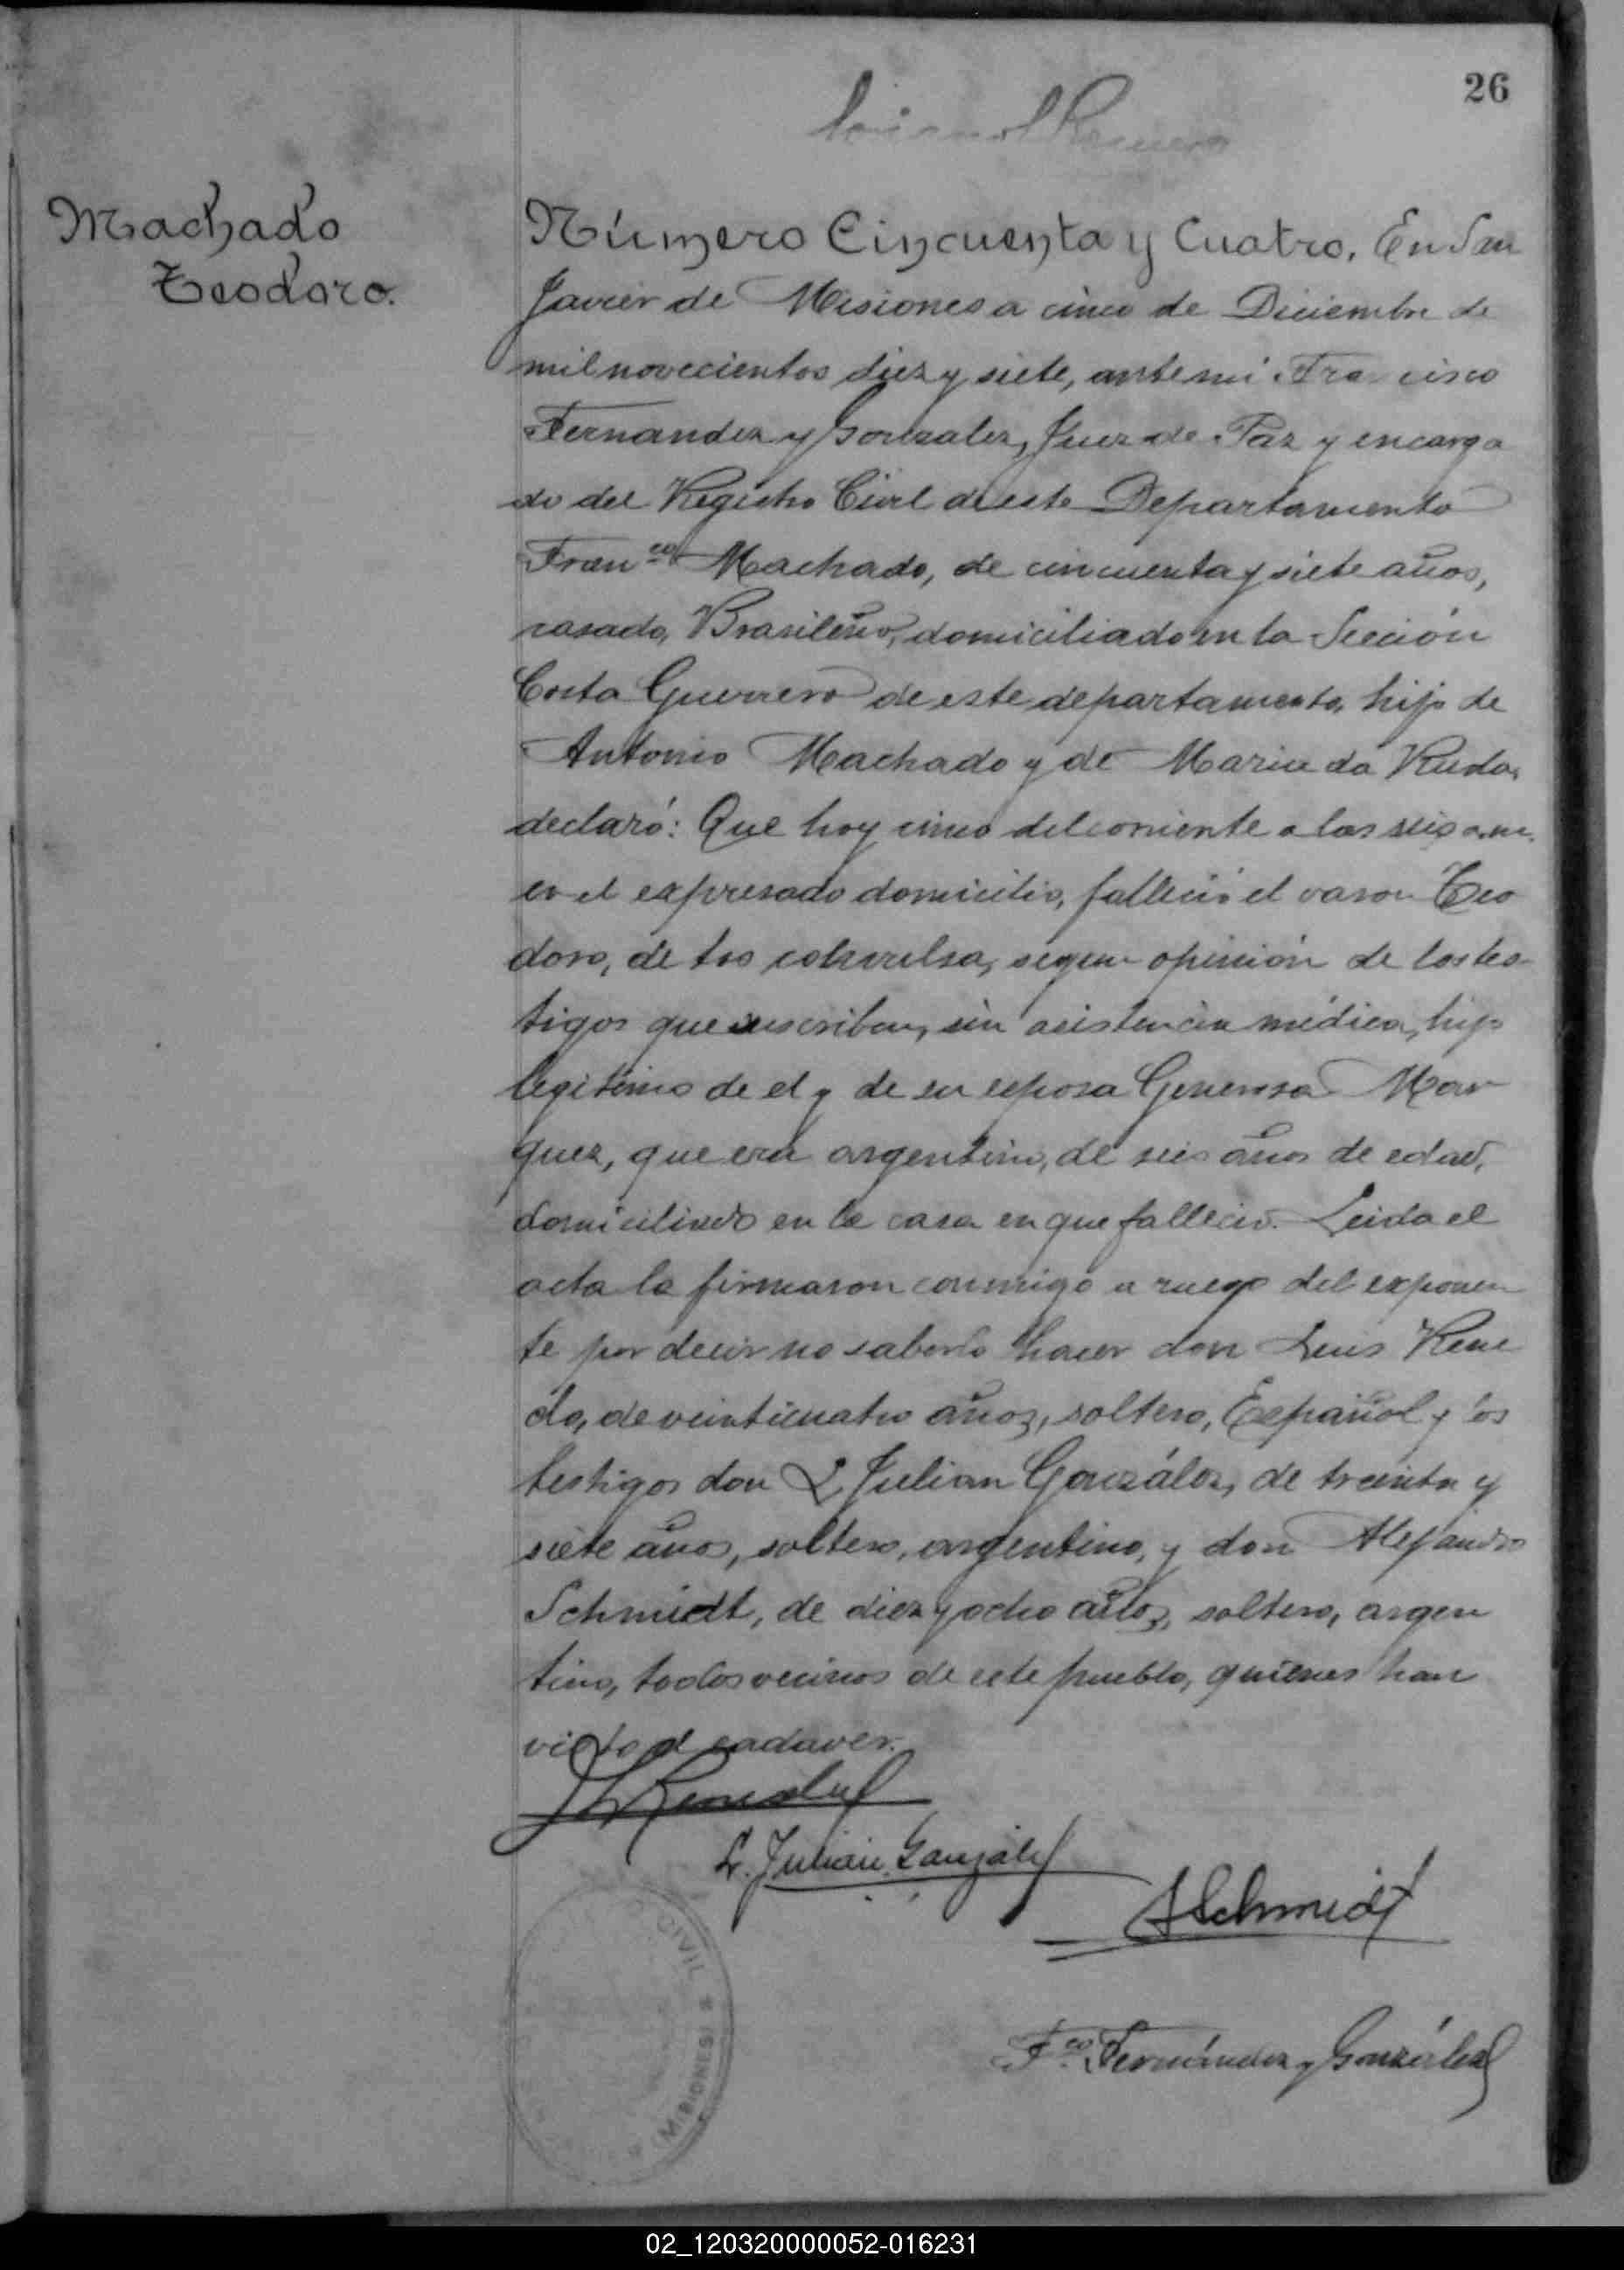 26
Machado
Teodoro.
Número Cincuenta y Cuatro. En San
Javier de Misiones a cinco de Diciembre de
mil novecientos diez y siete, ante mi Francisco
Fernandez y Gonzalez, Juez de Paz y encarga
do del Registro Civil de este Departamento
Fran.co Machado, de cincuenta y siete años,
casado, Brasileño, domiciliado en la Sección
Costa Guerrero de este departamento, hijo de
Antonio Machado y de Maria da
declaró: Que hoy cinco del corriente a las seis a.m.
en el expresado domicilio, falleció el varon Teo
doro, de tos convulsa, segun opinión de los tes-
tigos que suscriben, sin asistencia médica, hijo
legitimo de el y de su esposa Generosa Mar
quez, que era argentino, de seis años de edad,
domiciliado en la casa en que falleció. Leida el
acta la firmaron conmigo a ruego del exponen
te por decir no saberlo hacer don Luis Rene
do, de veinticuatro años, soltero, Español y los
testigos don L Julian González, de treinta y
siete años, soltero, argentino, y don Alejandro
Schmidt, de diez y ocho años, soltero, argen
tino, todos vecinos de este pueblo, quienes han
visto el cadaver.
L. Renedo
L. Julián González
ASchmidt
F.co Fernández y González
CIVIL
(MISIONES)
02_120320000052-016231